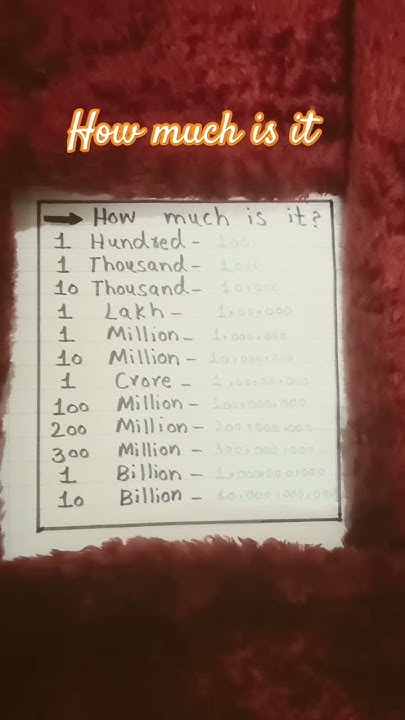 How much is it
→ How much is it?
1 Hundred - 100
1 Thousand - 1,000
10 Thousand - 10,000
1 Lakh - 1,00,000
1 Million - 1,000,000
10 Million - 10,000,000
1 Crore - 1,00,00,000
100 Million - 100,000,000
200 Million - 200,000,000
300 Million - 300,000,000
1 Billion -
10 Billion - 10,000,000,000